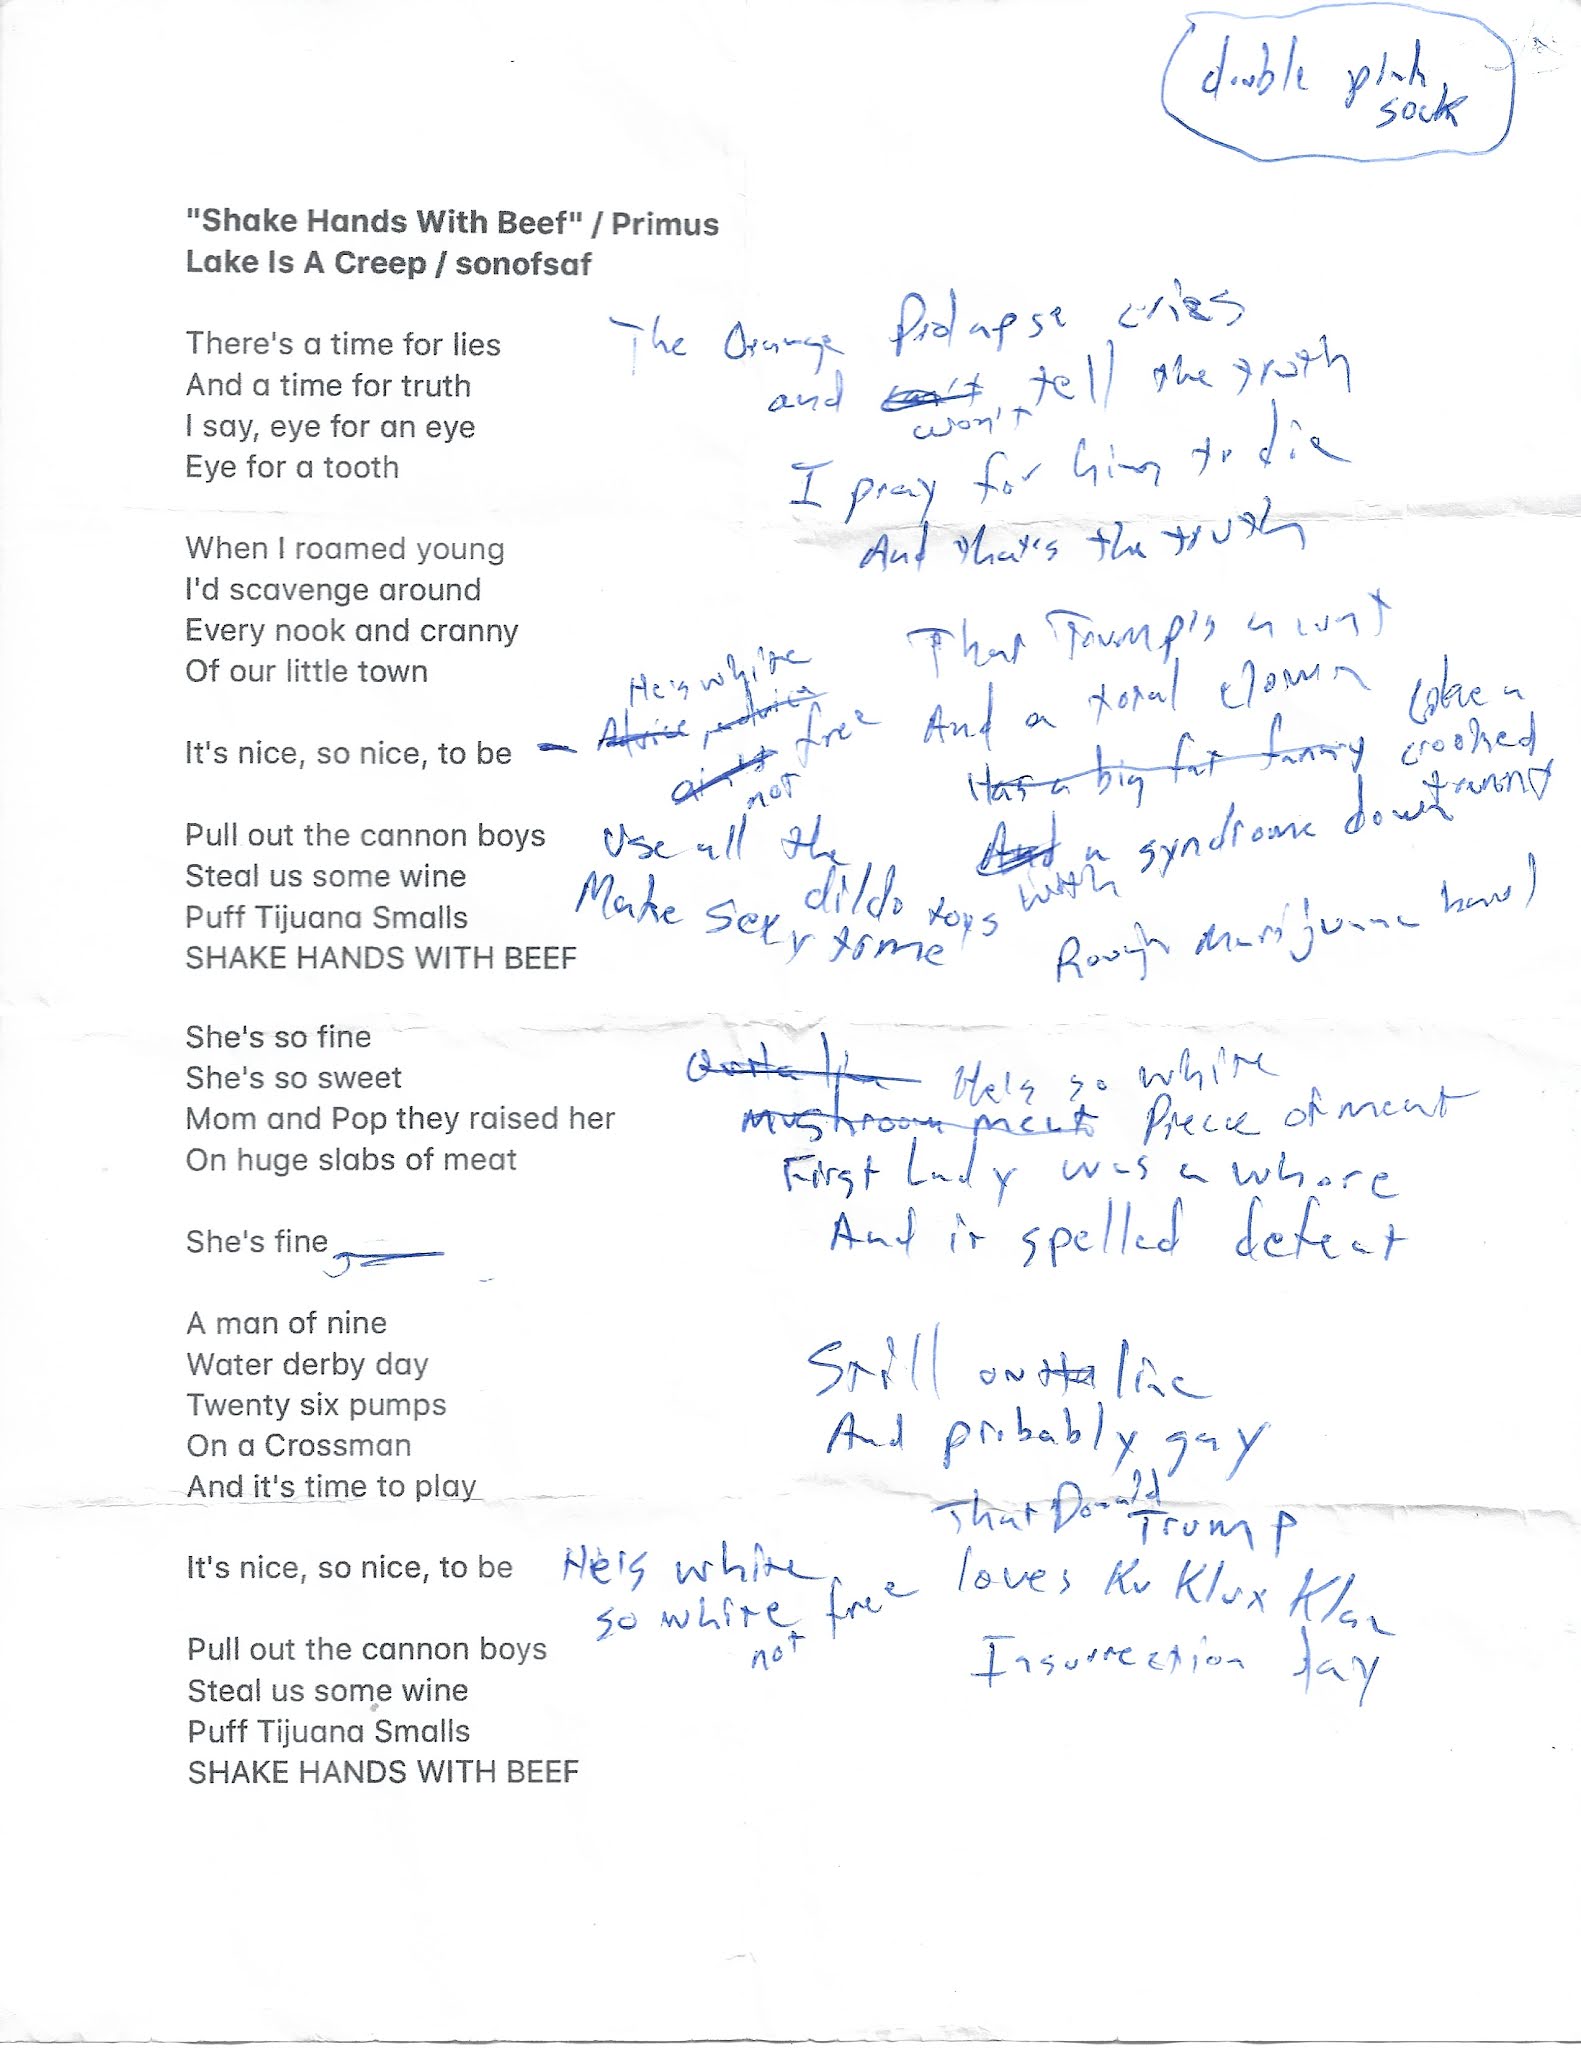 double pink
sock
"Shake Hands With Beef" / Primus
Lake Is A Creep / sonofsaf
There's a time for lies
And a time for truth
I say, eye for an eye
Eye for a tooth
The Orange Prolapse cries
and can't tell the truth
won't
I pray for him to die
And that's the truth
When I roamed young
I'd scavenge around
Every nook and cranny
Of our little town
That Trump's a cunt
And a total clown
Has a big fat fanny
Like a
crooked
tranny
And a syndrome down
with
It's nice, so nice, to be
He's white
free
ain't
not
Pull out the cannon boys
Steal us some wine
Puff Tijuana Smalls
SHAKE HANDS WITH BEEF
Use all the
dildo toys
Make sexy time
Rough Marijuana bowl
She's so fine
She's so sweet
Mom and Pop they raised her
On huge slabs of meat
He's so white
Mushroom meat Piece of meat
First Lady was a whore
And it spelled defeat
She's fine
A man of nine
Water derby day
Twenty six pumps
On a Crossman
And it's time to play
Still outta line
And probably gay
That Donald
Trump
loves Ku Klux Klan
Insurrection day
It's nice, so nice, to be
He's white
so white free
not
Pull out the cannon boys
Steal us some wine
Puff Tijuana Smalls
SHAKE HANDS WITH BEEF